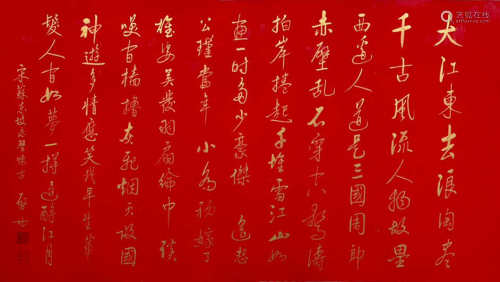 大江東去浪淘盡
千古風流人物故壘
西邊人道是三國周郎
赤壁亂石穿空驚濤
拍岸捲起千堆雪江山如
畫一時多少豪傑 遙想
公瑾當年 小喬初嫁了
雄姿英發羽扇綸巾談
笑間檣櫓灰飛烟滅故國
神遊多情應笑我早生華
髮人間如夢一樽還酹江月
宋蘇東坡赤壁懷古